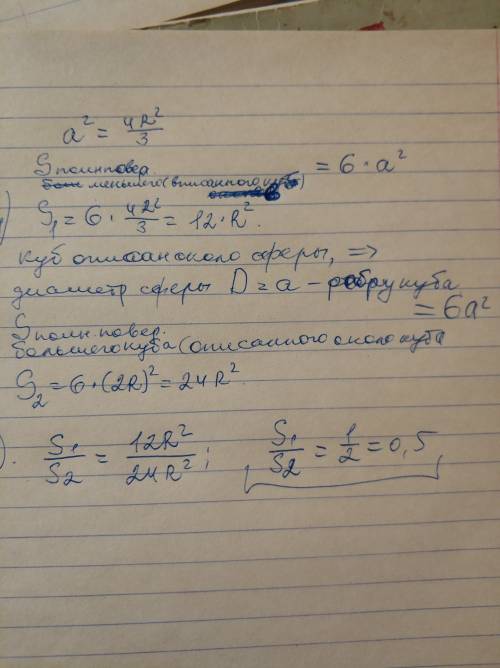 a² = 4R²/3
Sполн.повер. = 6·a²
меньшего (вписанного куба)
S₁ = 6 · 4R²/3 = 12·R².
куб описан около сферы, =>
диаметр сферы D = a - ребру куба
Sполн.повер. = 6a²
большего куба (описанного около куба
S₂ = 6·(2R)² = 24R²
). S₁/S₂ = 12R²/24R²; S₁/S₂ = 1/2 = 0,5